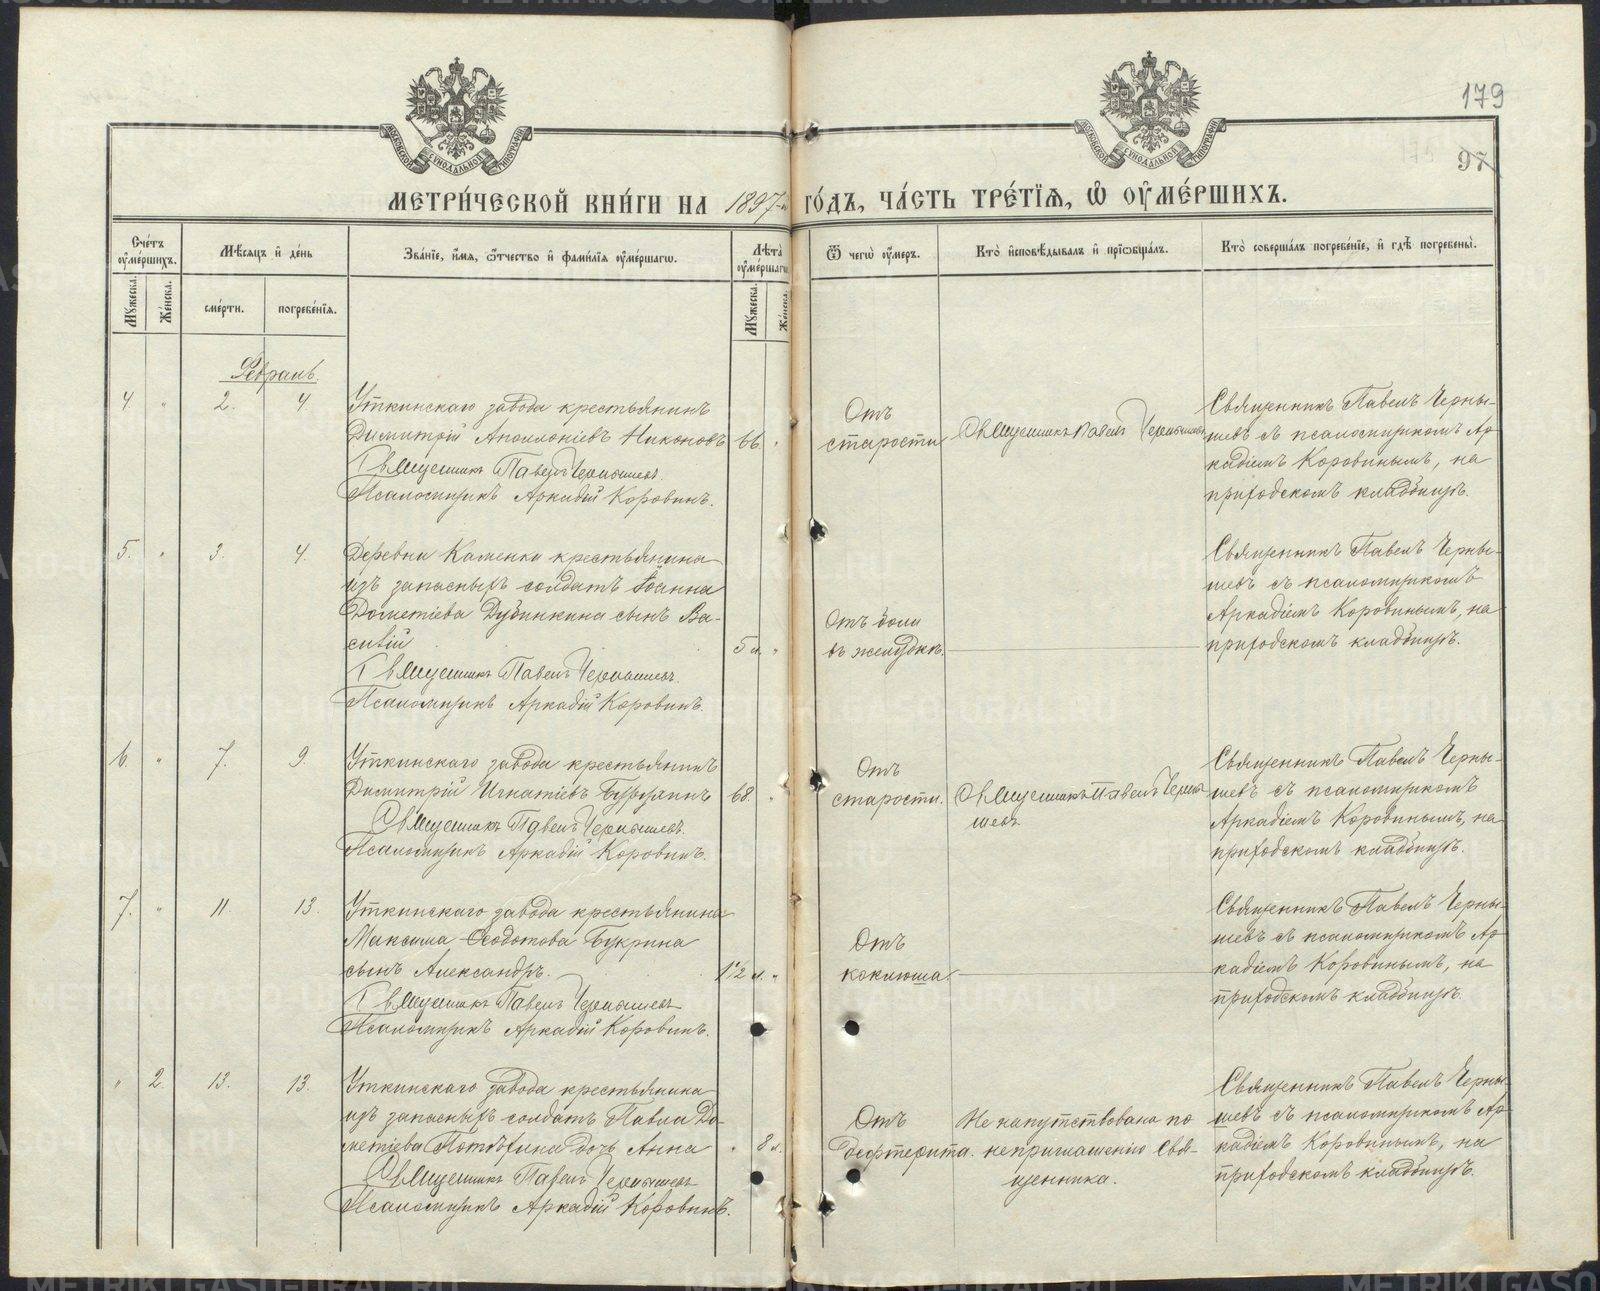 179
97
МОСКОВСКОЙ СѴНОДАЛЬНОЙ ТИПОГРАФІИ
МОСКОВСКОЙ СѴНОДАЛЬНОЙ ТИПОГРАФІИ
МЕТРИ́ЧЕСКОЙ КНИ́ГИ НА 1897-й ГО́ДЪ, ЧА́СТЬ ТРЕ́ТІЯ, Ѡ ОУМЕ́РШИХЪ.
Сче́тъ оуме́ршихъ.
Мꙋжеска.
Же́нска.
Мѣ́сяцъ и де́нь
сме́рти.
погребе́нія.
Зва́ніе, и́мя, ѻ́тчество и фами́лія оуме́ршагѡ.
Лѣ́та оуме́ршагѡ
Мꙋжеска.
Же́нска.
Ѿ чегѡ̀ оу́меръ.
Кто̀ исповѣ́дывалъ и пріѡбща́лъ.
Кто̀ соверша́лъ погребе́ніе, и гдѣ̀ погребены̀.
Февраль
4. " 2. 4.
Уткинскаго завода крестьянинъ
Димитрій Аполлоніевъ Никоновъ 66. "
Священникъ Павелъ Чернышевъ.
Псаломщикъ Аркадій Коровинъ.
Отъ
старости
Священникъ Павелъ Чернышевъ
Священникъ Павелъ Черны-
шевъ съ псаломщикомъ Ар-
кадіемъ Коровинымъ, на
приходскомъ кладбищѣ.
5. " 3. 4.
Деревни Каменки крестьянина
изъ запасныхъ солдатъ Іоанна
Дометіева Дубинкина сынъ Ва-
силій 5 м. "
Священникъ Павелъ Чернышевъ.
Псаломщикъ Аркадій Коровинъ.
Отъ боли
въ желудкѣ.
Священникъ Павелъ Черны-
шевъ съ псаломщикомъ
Аркадіемъ Коровинымъ, на
приходскомъ кладбищѣ.
6. " 7. 9.
Уткинскаго завода крестьянинъ
Димитрій Игнатіевъ 68. "
Священникъ Павелъ Чернышевъ.
Псаломщикъ Аркадій Коровинъ.
Отъ
старости.
Священникъ Павелъ Черны-
шевъ
Священникъ Павелъ Черны-
шевъ съ псаломщикомъ
Аркадіемъ Коровинымъ, на
приходскомъ кладбищѣ.
7. " 11. 13.
Уткинскаго завода крестьянина
Максима Ѳеодотова Букрина
сынъ Александръ. 1½ м. "
Священникъ Павелъ Чернышевъ
Псаломщикъ Аркадій Коровинъ.
Отъ
коклюша.
Священникъ Павелъ Черны-
шевъ съ псаломщикомъ Ар-
кадіемъ Коровинымъ, на
приходскомъ кладбищѣ.
" 2. 13. 13.
Уткинскаго завода крестьянина
изъ запасныхъ солдатъ Павла До-
метіева дочь Анна " 8 м.
Священникъ Павелъ Чернышевъ
Псаломщикъ Аркадій Коровинъ.
Отъ
дифтерита.
Не напутствована по
неприглашенію Свя-
щенника.
Священникъ Павелъ Черны-
шевъ съ псаломщикомъ Ар-
кадіемъ Коровинымъ, на
приходскомъ кладбищѣ.
METRIKI.GASO-URAL.RU